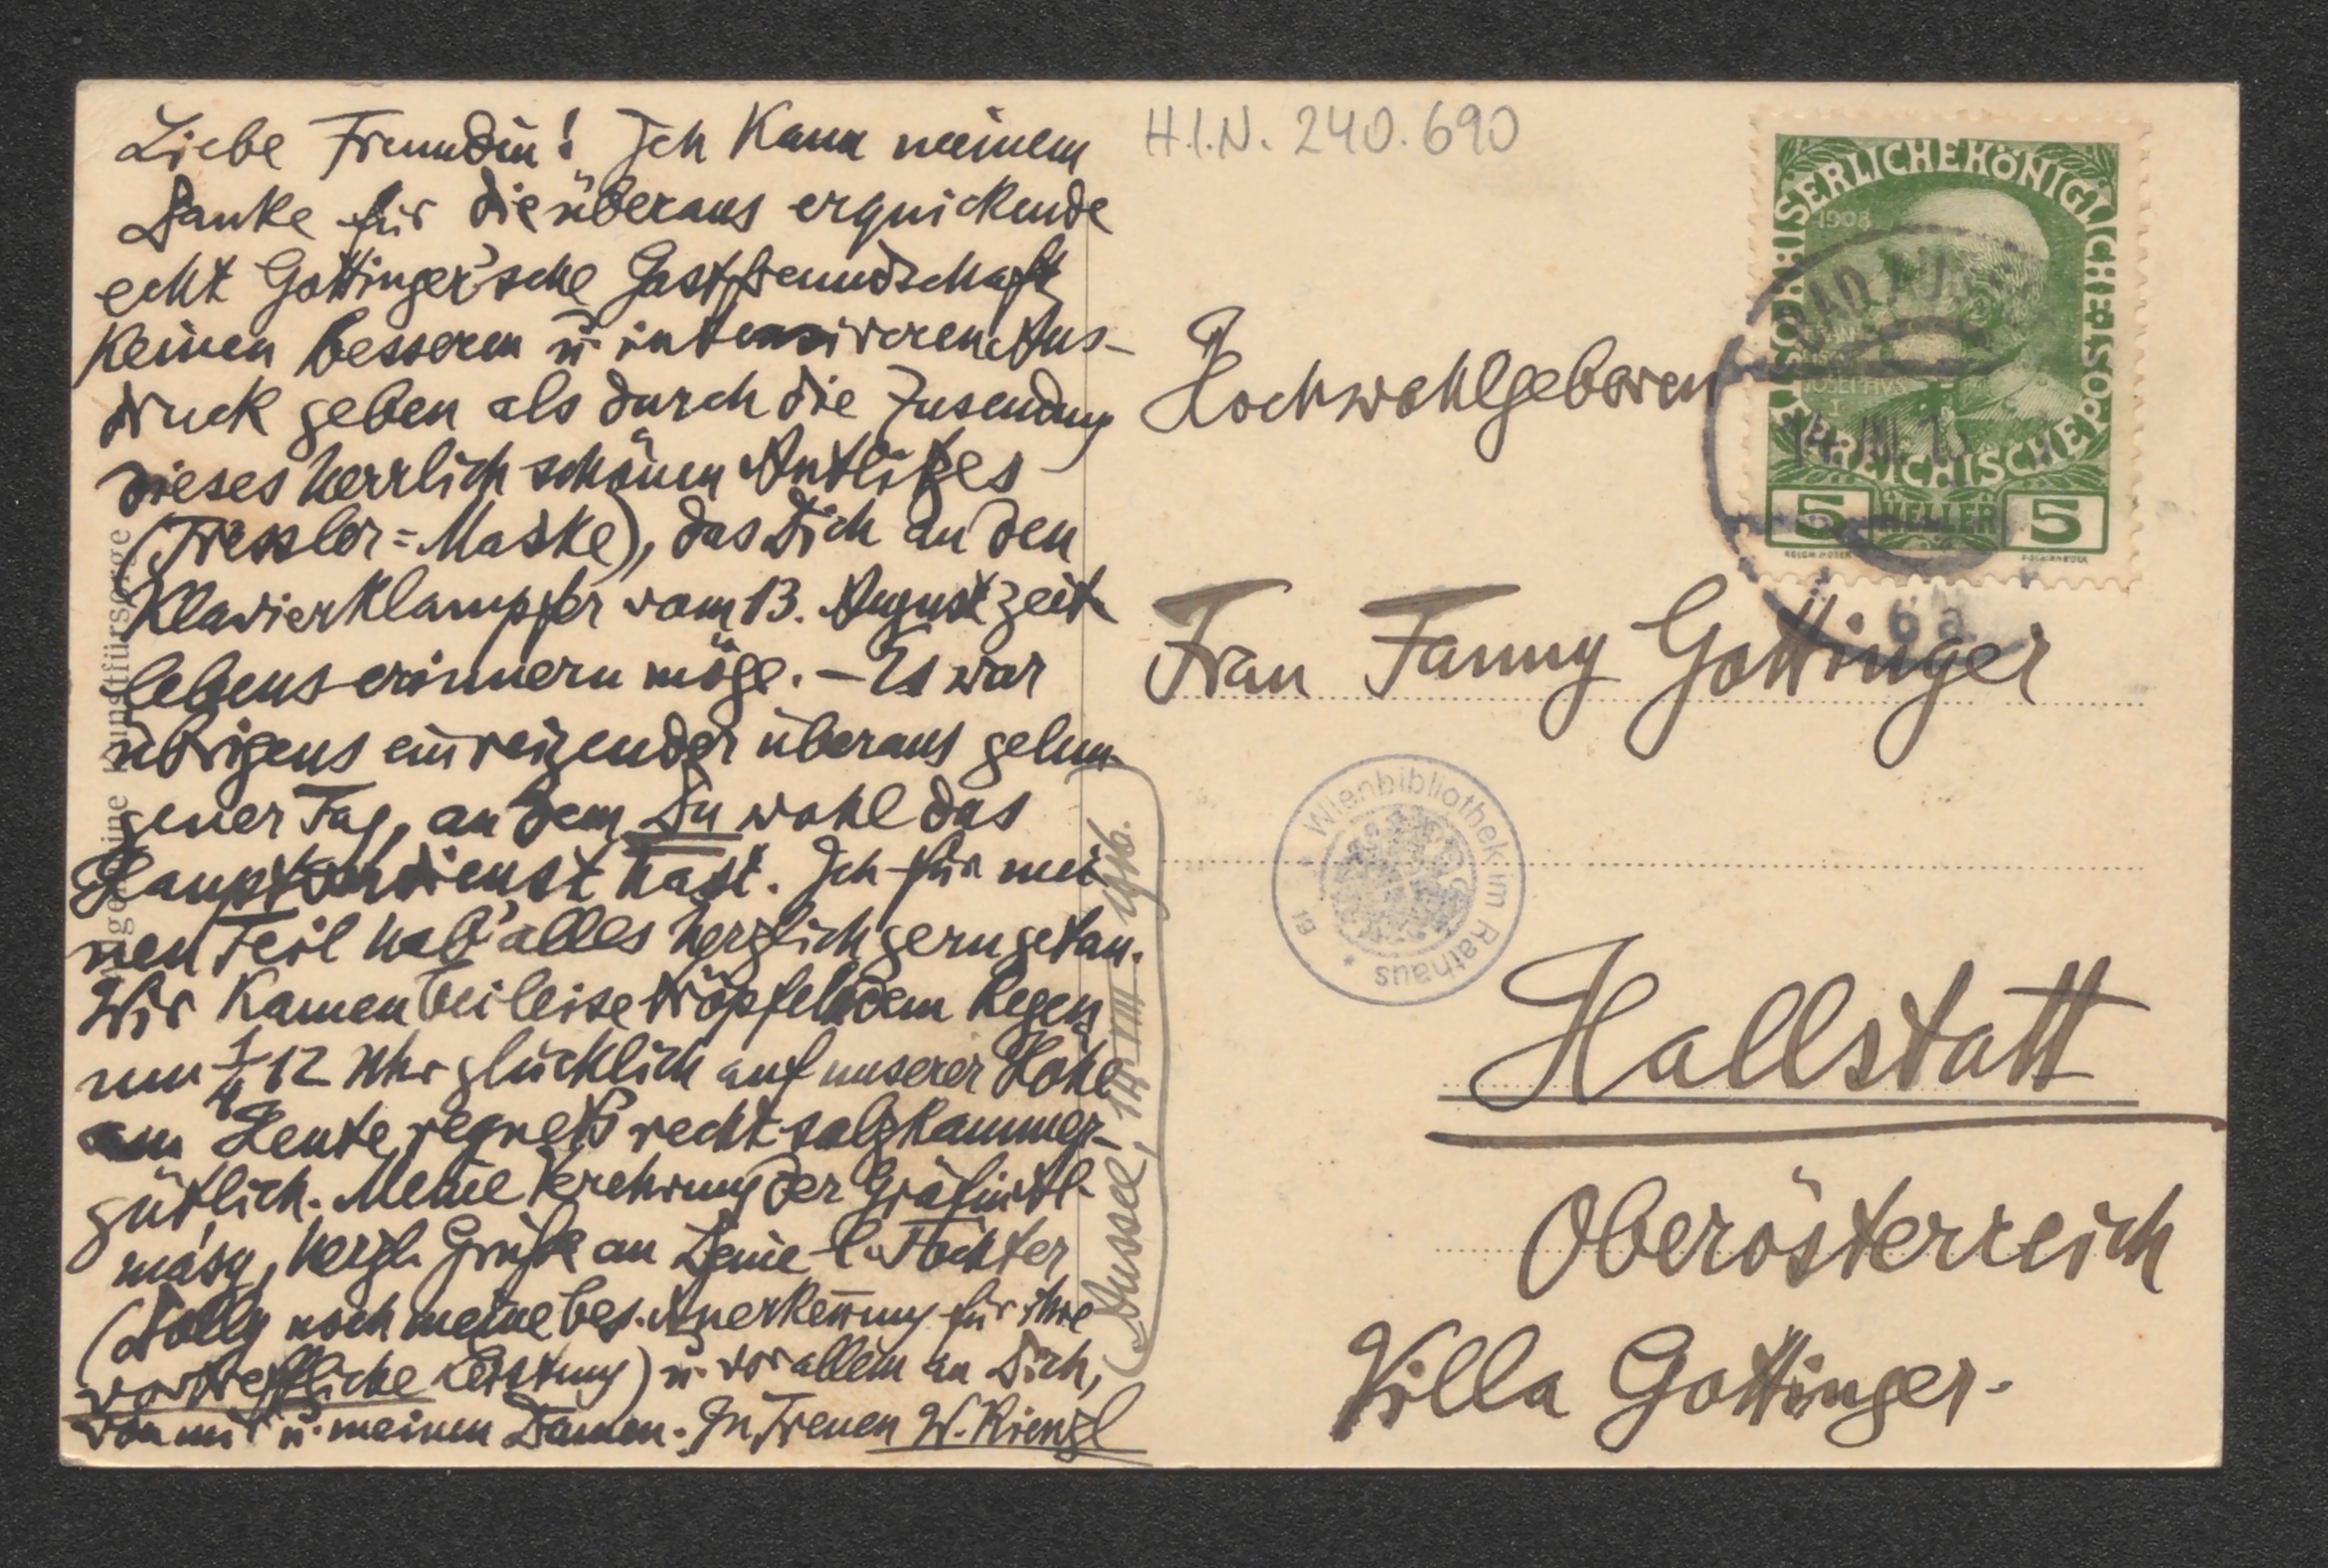 Liebe Freundin! Ich kann meinem
Danke für die überaus erquickende
echt Gottinger'sche Gastfreundschaft
keinen besseren u. intensiveren Aus-
druck geben als durch die Zusendung
dieses herrlich schönen Antlitzes
(Tressler=Maske), das Dich an den
Klavierklampfer vom 13. August zeit
lebens erinnern möge. – Es war
übrigens ein reizender überaus gelun-
gener Tag, an dem Du wohl das
Hauptverdienst hast. Ich für mei-
nen Teil hab' alles herzlich gern getan.
Wir kamen bei leise tröpfelndem Regen
um 1/4 12 Uhr glücklich auf unserer Höhe
an Heute regnet's recht salzkammer-
gütlich. Meine Verehrung der Gräfin
, herzl. Grüße an Deine l. Tochter
(Dolly noch meine bes. Anerkennung für ihre
vortreffliche Leistung) u. vor allem an Dich,
von mir u. meinen Damen. In Treuen W. Kienzl
Aussee, 14. VIII. 1916.
H.I.N. 240.690
KAISERLICHE KÖNIGLICHE ÖSTERREICHISCHE POST
1908
5 HELLER 5
6a
Hochwohlgeboren
Frau Fanny Gottinger
Wienbibliothek im Rathaus
Hallstatt
Oberösterreich
Villa Gottinger.